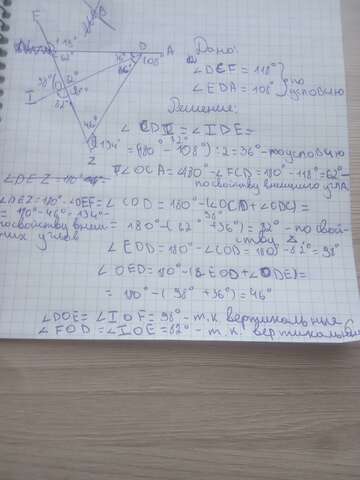 F
118°
62°
D
A
36°
36°
108°
98°
O
82°
82°
98°
I
46°
134°
Z
Дано:
∠DCF = 118°
∠EDA = 108°
по
условию
Решение:
∠CDI = ∠IDE =
= (180° - 108°) : 2 = 36° - по условию
∠OCA = 180° - ∠FCD = 180° - 118° = 62°
по свойству внешнего угла
∠DEZ = 180° - OEF =
= 180° - 46° = 134° -
по свойству внеш-
них углов
∠COD = 180° - (∠OCD + ∠ODC) =
180° - (62° + 36°) = 82° - по свой-
ству Δ
∠EOD = 180° - ∠COD = 180° - 82° = 98°
∠OED = 180° - (∠EOD + ∠ODE) =
= 180° - (98° + 36°) = 46°
∠DOE = ∠IOF = 98° - т.к. вертикальные
∠FOD = ∠IOE = 82° - т.к. вертикальные